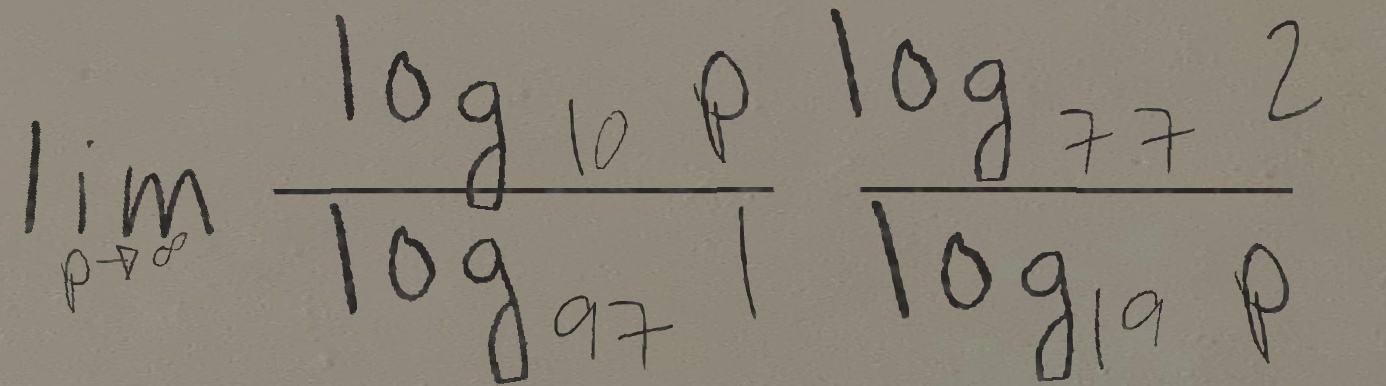 lim p→∞ log₁₀ p / log₉₇ 1 log₇₇ 2 / log₁₉ p